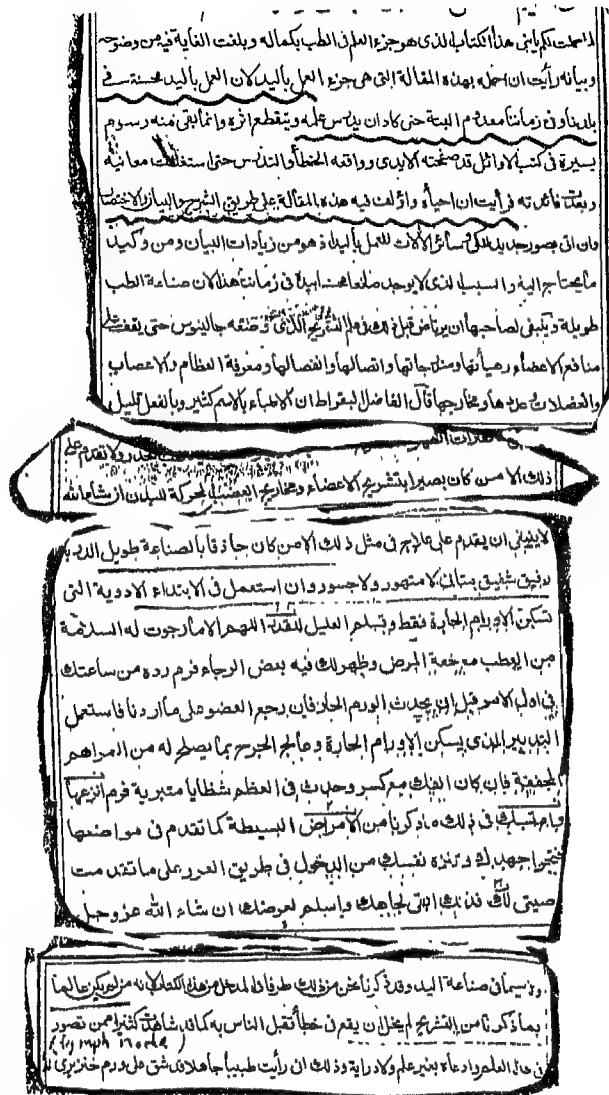 لما كملت لكم يا بني هذا الكتاب الذى هو جزء العلم فى الطب بكماله وبلغت الغاية فيه من وضوحه
وبيانه رأيت ان اكمله بهذه المقالة التى هى جزء العمل باليد لان العمل باليد محسنة فى
بلدنا وفى زماننا معدوم البتة حتى كاد ان يدرس علمه وينقطع اثره وانما بقى منه رسوم
يسيرة فى كتب الاوائل قد صحفته الايدى وواقعه الخطأ والتدس حتى استغلقت معانيه
وبعدت فائدته فرأيت ان احياه واؤلف فيه هذه المقالة على طريق الشرح والبيان والاختصار
وان اتى بصور حديد الكى وسائر الالات للعمل باليد اذ هو من زيادات البيان ومن وكيد
ما يحتاج اليه والسبب الذى لا يوجد صانعا محسنا بيده فى زماننا هذا لان صناعة الطب
طويلة وينبغى لصاحبها ان يرتاض قبل ذلك فى علم التشريح الذى وضعه جالينوس حتى يقف على
منافع الاعضاء وهيأتها ومزاجاتها واتصالها وانفصالها ومعرفة العظام والاعصاب
والعضلات وعددها ومخارجها قال الفاضل البقراط ان الاطباء بالاسم كثير وبالفعل قليل
ولا تقدم على
ذلك الا من كان بصيرا بتشريح الاعضاء ومخارج العصب المحركة للبدن ان شاء الله
لا ينبغى ان يقدم على علاج فى مثل ذلك الا من كان حاذقا بالصناعة طويل الدربة
رفيق شفيق متأن لا متهور ولا جسور وان استعمل فى الابتداء الادوية التى
تسكن الاورام الحارة فقط وتسلم العليل للقدر اللهم الا ما رجوت له السلامة
من العطب مع خفة المرض وظهر لك فيه بعض الرجاء فرم رده من ساعتك
فى اول الامر قبل ان يحدث الورم الحار فان رجع العضو على ما اردنا فاستعمل
التدبير الذى يسكن الاورام الحارة وعالج الجرح بما يصلح له من المراهم
المجففة فان كان الفك مع كسر وحدث فى العظم شظايا متبرية فرم انزعها
وامتثل فى ذلك ما ذكرنا من الامراض البسيطة كما تقدم فى مواضعها
جهدك ونزه نفسك من الدخول فى طريق الغرر على ما تقدمت
وصيتى لك فذلك ابقى لجاهك واسلم لعرضك ان شاء الله عز وجل
ولا سيما فى صناعة اليد وقد ذكرنا نحن من ذلك طرفا فى المدخل من هذا الكتاب لانه من لم يكن عالما
بما ذكرنا من التشريح لم يخل ان يقع فى خطأ تقبل الناس به كما قد شاهدت كثيرا ممن تصور
(lymph node)
فى هذا العلم وادعاه بغير علم ولا دراية وذلك ان رأيت طبيبا جاهلا قد شق على ورم خنزيرى